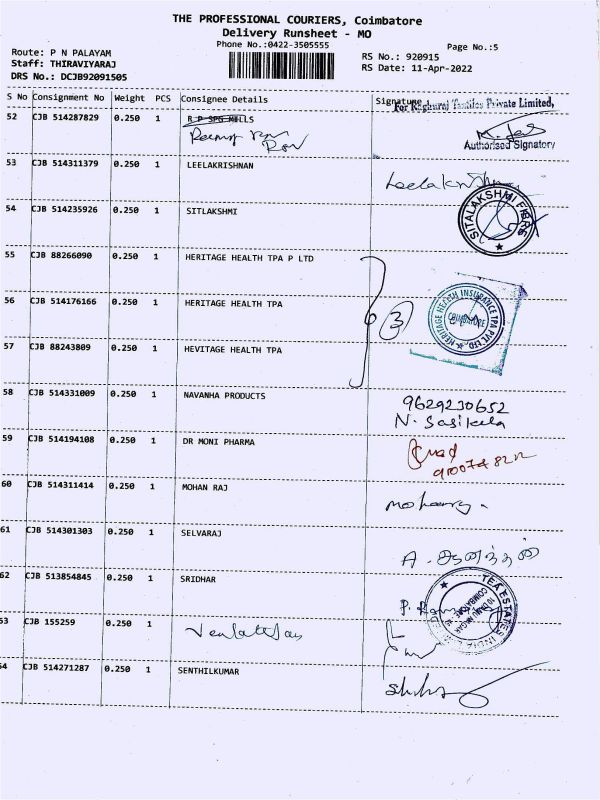 THE PROFESSIONAL COURIERS, Coimbatore
Delivery Runsheet - MO
Phone No.:0422-3505555
Page No.:5
Route: P N PALAYAM
Staff: THIRAVIYARAJ
DRS No.: DCJB92091505
RS No.: 920915
RS Date: 11-Apr-2022
S No Consignment No Weight PCS Consignee Details Signature
For Raghuraj Textiles Private Limited,
52 CJB 514287829 0.250 1 R P SPG MILLS
Authorised Signatory
53 CJB 514311379 0.250 1 LEELAKRISHNAN
Leelakrishnan
54 CJB 514235926 0.250 1 SITLAKSHMI
SITALAKSHMI FIBRES
55 CJB 88266090 0.250 1 HERITAGE HEALTH TPA P LTD
56 CJB 514176166 0.250 1 HERITAGE HEALTH TPA
3
HERITAGE HEALTH INSURANCE TPA PVT. LTD.
COIMBATORE
57 CJB 88243809 0.250 1 HEVITAGE HEALTH TPA
58 CJB 514331009 0.250 1 NAVANHA PRODUCTS
9629230652
N. Sasikala
59 CJB 514194108 0.250 1 DR MONI PHARMA
60 CJB 514311414 0.250 1 MOHAN RAJ
61 CJB 514301303 0.250 1 SELVARAJ
A. ஆனந்தன்
62 CJB 513854845 0.250 1 SRIDHAR
TEA ESTATES INDIA
COIMBATORE
63 CJB 155259 0.250 1
64 CJB 514271287 0.250 1 SENTHILKUMAR